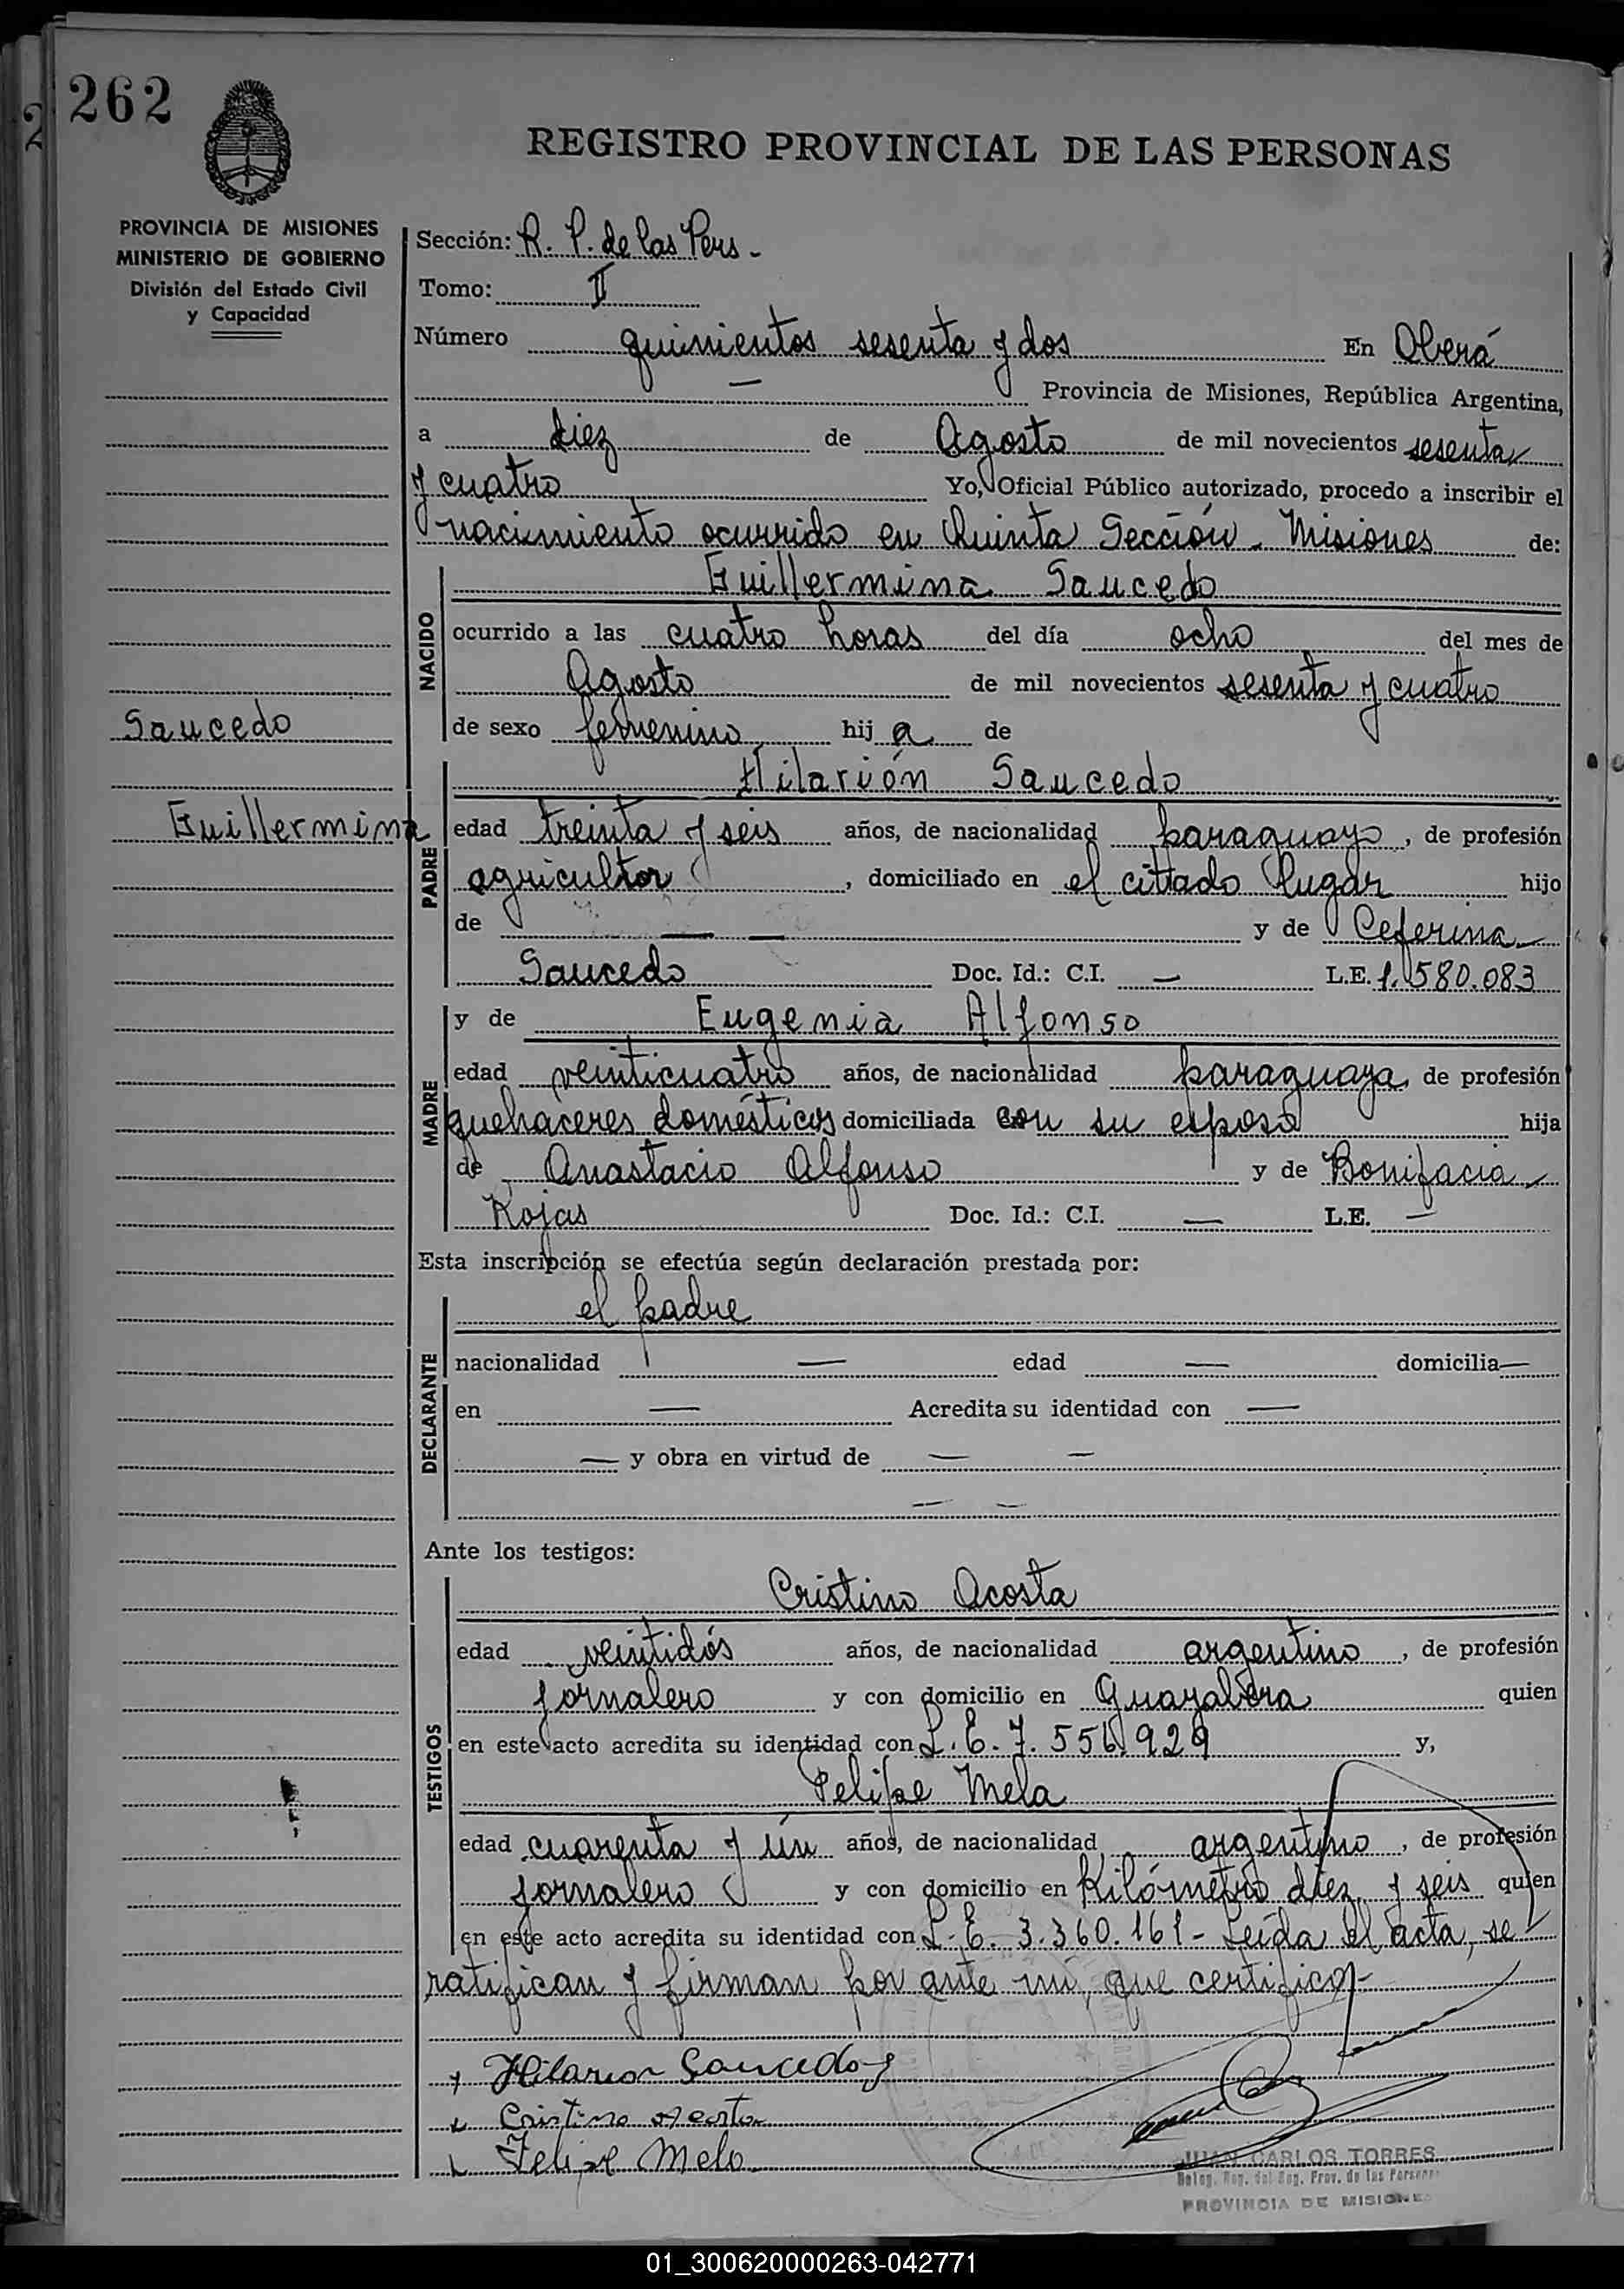 262
REGISTRO PROVINCIAL DE LAS PERSONAS
PROVINCIA DE MISIONES
MINISTERIO DE GOBIERNO
División del Estado Civil
y Capacidad
Sección: R. P. de las Pers -
Tomo: II
Número quinientos sesenta y dos En Oberá
— Provincia de Misiones, República Argentina,
a diez de Agosto de mil novecientos sesenta
y cuatro Yo, Oficial Público autorizado, procedo a inscribir el
nacimiento ocurrido en Quinta Sección - Misiones de:
NACIDO
Guillermina Saucedo
ocurrido a las cuatro horas del día ocho del mes de
Agosto de mil novecientos sesenta y cuatro
Saucedo
de sexo femenino hija de
PADRE
Hilarión Saucedo
Guillermina
edad treinta y seis años, de nacionalidad paraguayo, de profesión
agricultor, domiciliado en el cittado lugar hijo
de — — y de Ceferina
Saucedo Doc. Id.: C.I. — L.E. 1.580.083
MADRE
y de Eugenia Alfonso
edad veinticuatro años, de nacionalidad paraguaya, de profesión
quehaceres domésticos domiciliada con su esposo hija
de Anastacio Alfonso y de Bonifacia
Rojas Doc. Id.: C.I. — L.E. —
Esta inscripción se efectúa según declaración prestada por:
DECLARANTE
el padre
nacionalidad — edad — domicilia—
en — Acredita su identidad con —
— y obra en virtud de — —
— —
Ante los testigos:
TESTIGOS
Cristino Acosta
edad veintidós años, de nacionalidad argentino, de profesión
jornalero y con domicilio en Guayabera quien
en este acto acredita su identidad con L. E. 7. 556.929 y,
Felipe Mela
edad cuarenta y ún años, de nacionalidad argentino, de profesión
jornalero y con domicilio en Kilómetro diez y seis quien
en este acto acredita su identidad con L. E. 3.360.161 - Leída el acta, se
ratifican y firman por ante mí, que certifico -
Hilarion Saucedo
Cristino Acosta
Felipe Melo
JUAN CARLOS TORRES
Deleg. Reg. del Reg. Prov. de las Personas
PROVINCIA DE MISIONES
01_300620000263-042771